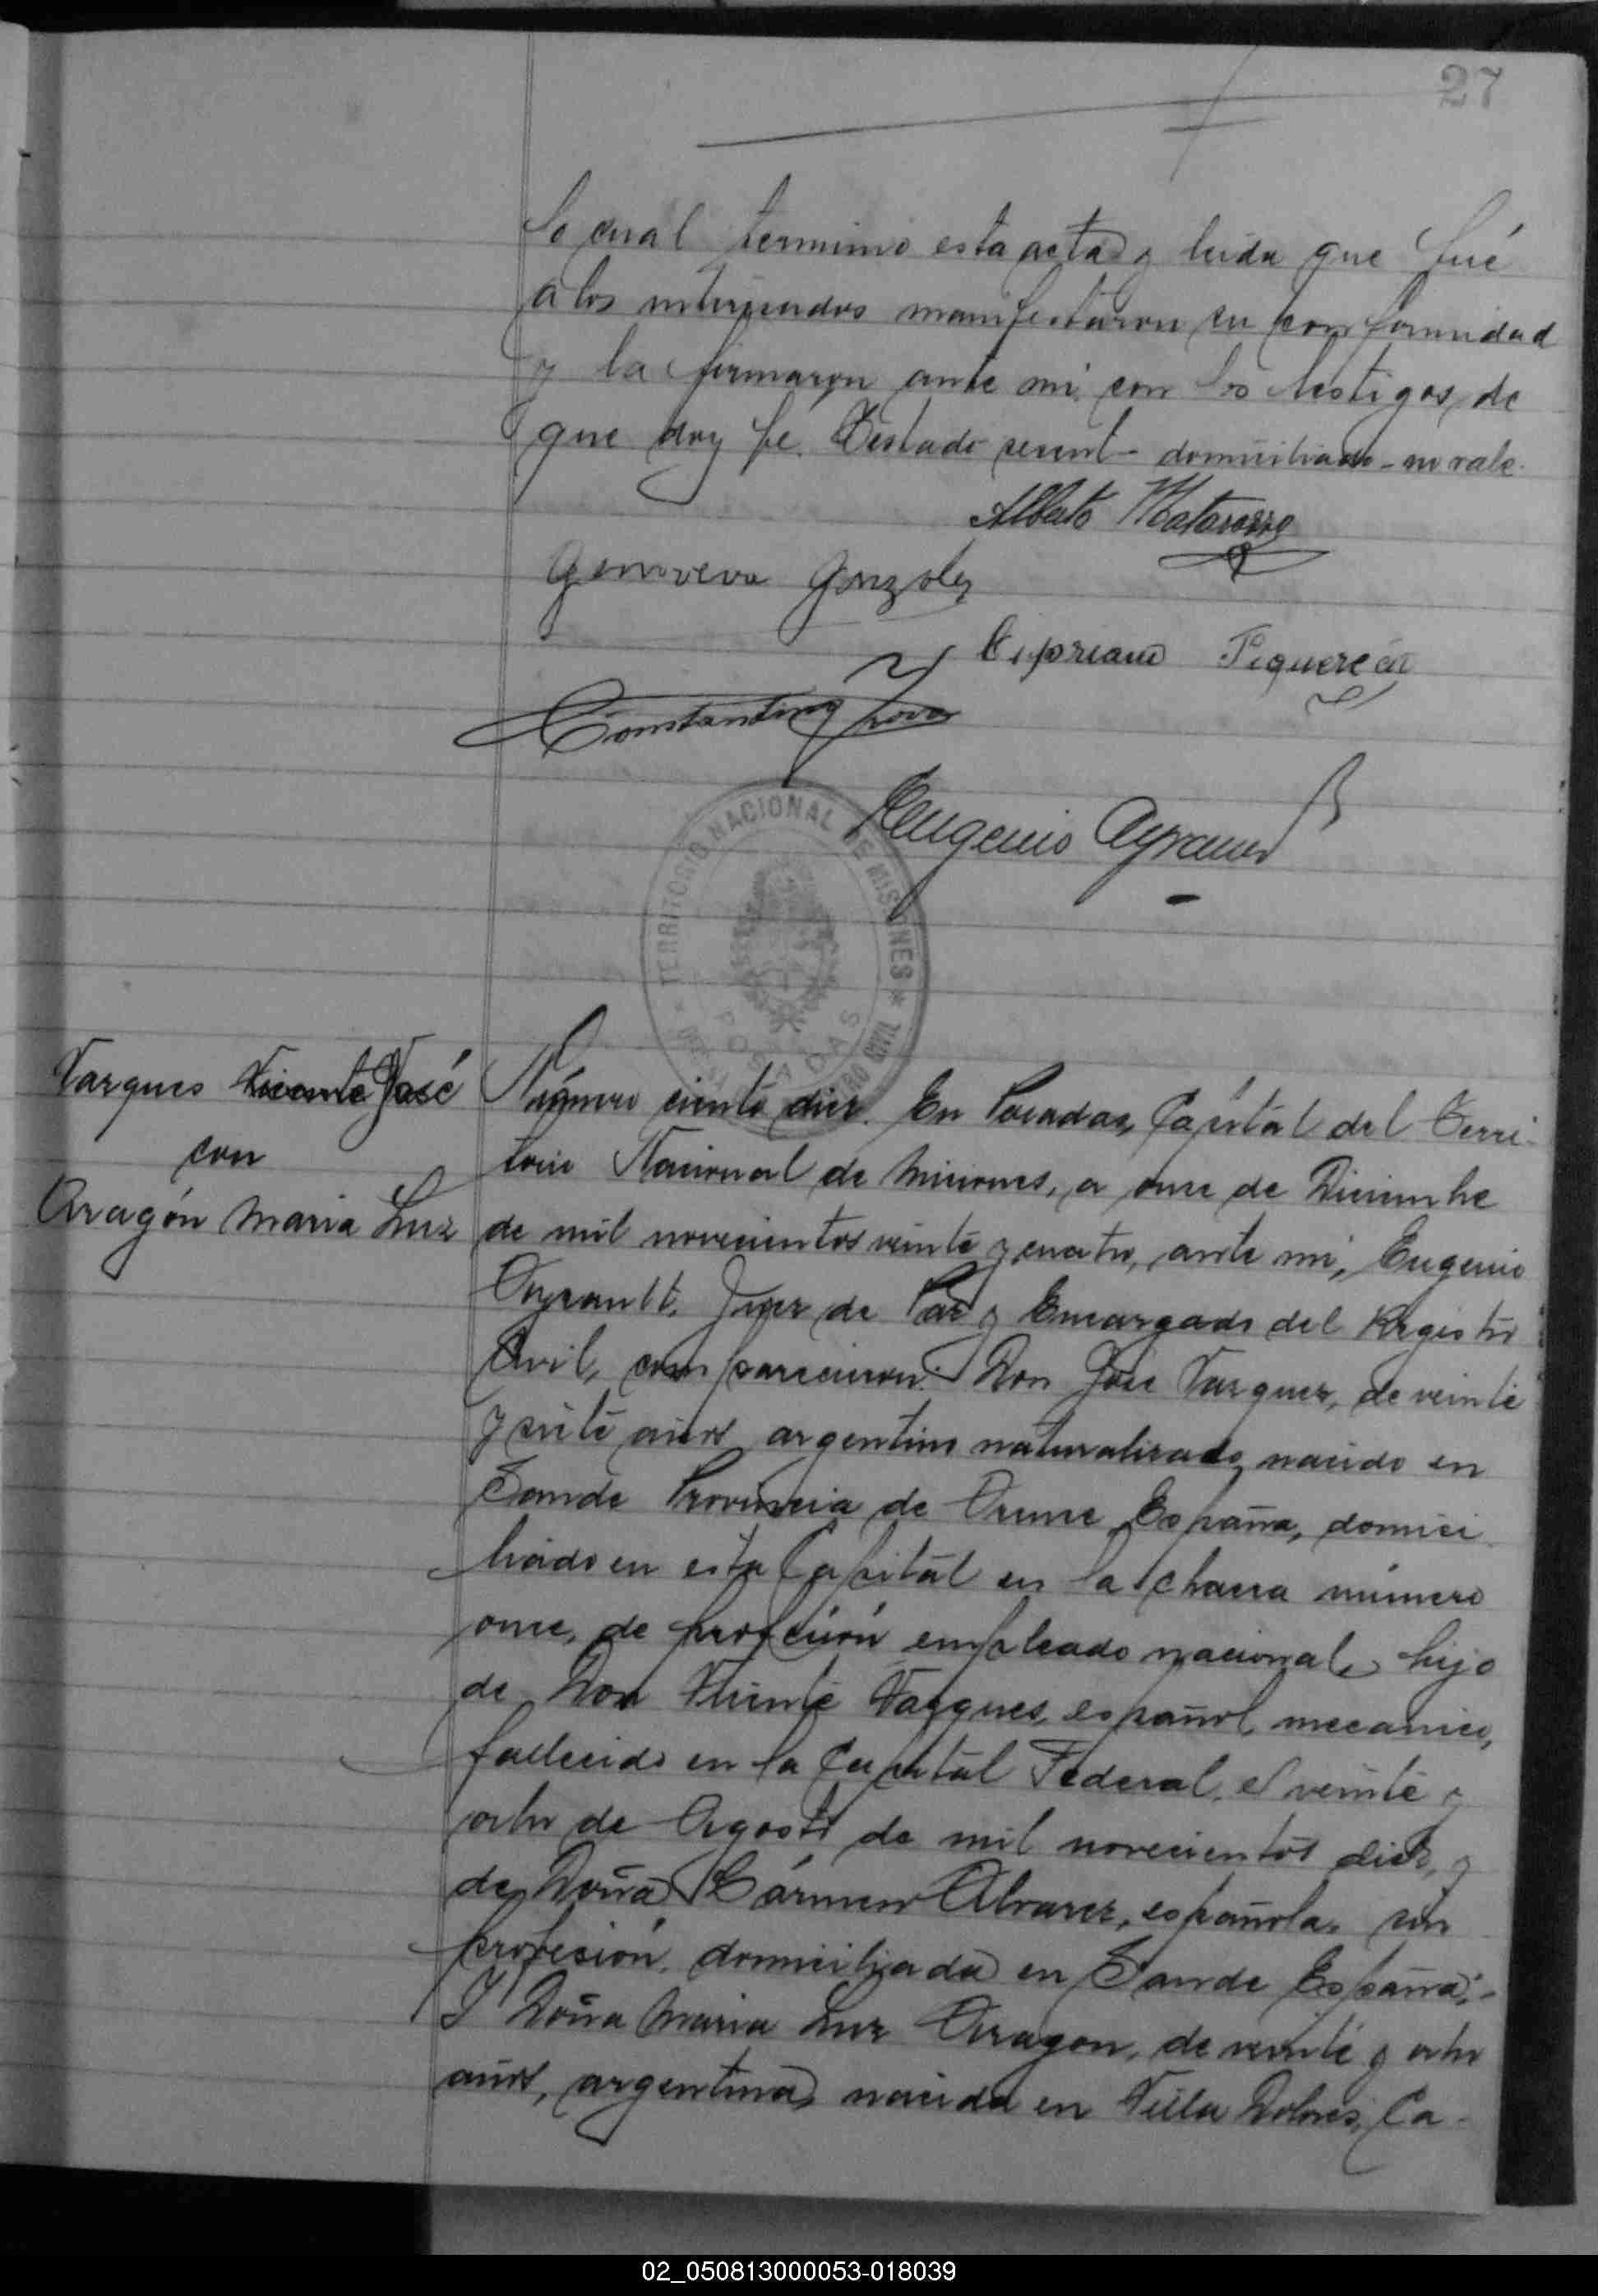 27
lo cual termino esta acta y leida que fué
a los interesados manifestaron su conformidad
y la firmaron ante mi con los testigos, de
que doy fé. Testado domiciliado - no vale.
Alberto Matarozzo
Genoveva Gonzalez
Cipriano
Constantino
Eugenio Ayrault
TERRITORIO NACIONAL DE MISIONES
REGISTRO CIVIL
POSADAS
Vazques Vicente José
con
Aragón Maria Luz
Número ciento diez. En Posadas, Capital del Terri-
torio Nacional de Misiones, a once de Diciembre
de mil novecientos veinte y cuatro, ante mi, Eugenio
Ayrault, Juez de Paz y Encargado del Registro
Civil, comparecieron: Don José Vazquez, de veinte
y siete años argentino naturalizado, nacido en
Sande Provincia de Orense España, domici
liado en esta Capital en la chacra número
once, de profesión empleado nacional, hijo
de Don Vicente Vazques, español, mecanico,
fallecido en la Capital Federal, el veinte y
ocho de Agosto de mil novecientos diez, y
de Doña Cármen Alvarez, española, sin
profesión, domiciliada en Sande España;-
Y Doña Maria Luz Aragon, de veinte y ocho
años, argentina, nacida en Villa Dolores, Ca-
02_050813000053-018039